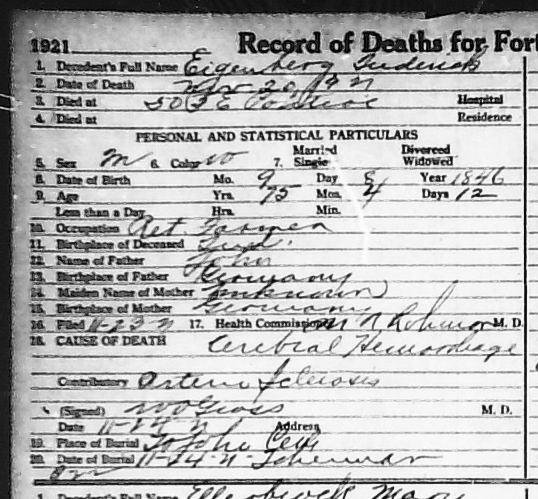 1921 Record of Deaths for Fort
1. Decedent's Full Name Eigenberg Frederick
2. Date of Death
3. Died at 502 E Pontiac Hospital
4. Died at Residence
PERSONAL AND STATISTICAL PARTICULARS
Married Divorced
5. Sex M 6. Color W 7. Single Widowed
8. Date of Birth Mo. 9 Day 8 Year 1846
9. Age Yrs. 75 Mos. 4 Days 12
Less than a Day Hrs. Min.
10. Occupation Ret. Farmer
11. Birthplace of Deceased Ind.
12. Name of Father John
13. Birthplace of Father Germany
14. Maiden Name of Mother Unknown
15. Birthplace of Mother Germany
16. Filed 11-23-21 17. Health Commissioner M. D.
18. CAUSE OF DEATH Cerebral Hemorrhage
Contributory Arterio Sclerosis
(Signed) W O Gross M. D.
Date Address
19. Place of Burial
20. Date of Burial 11-24-21
1. Decedent's Full Name Mary